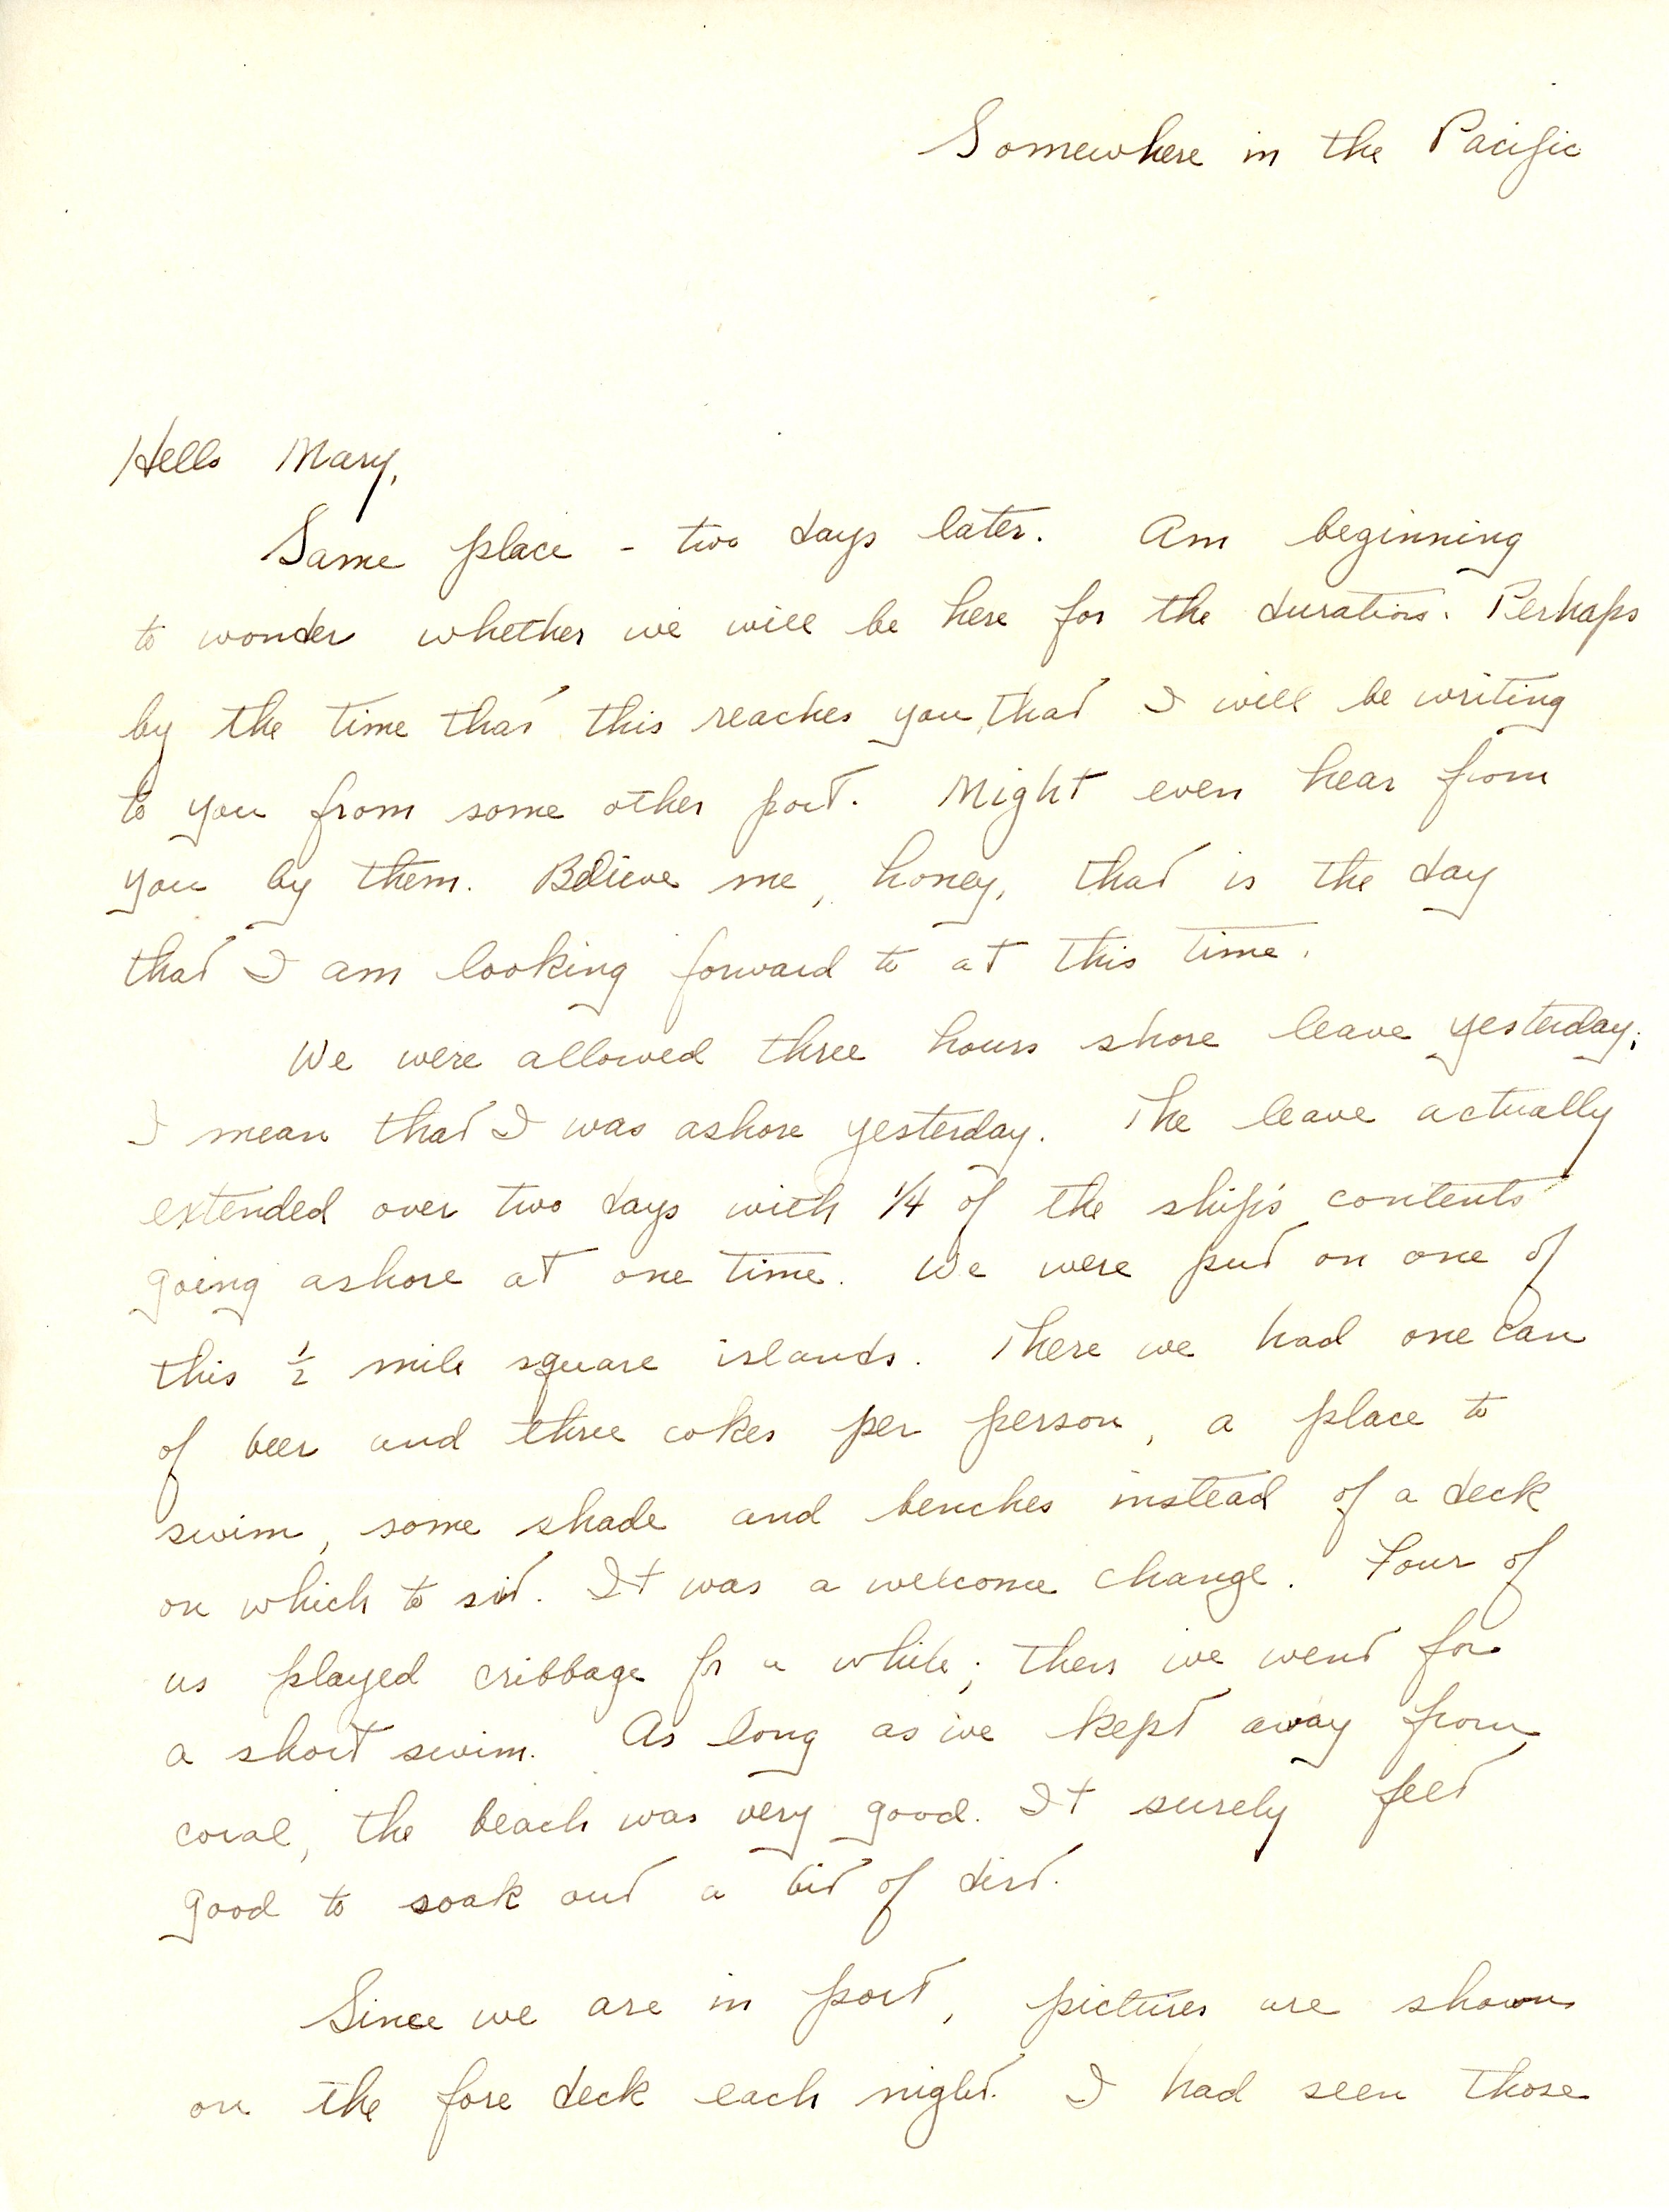 Somewhere in the Pacific
Hello Mary,
Same place - two days later. Am beginning
to wonder whether we will be here for the duration. Perhaps
by the time that this reaches you, that I will be writing
to you from some other port. Might even hear from
you by then. Believe me, honey, that is the day
that I am looking forward to at this time.
We were allowed three hours shore leave yesterday;
I mean that I was ashore yesterday. The leave actually
extended over two days with 1/4 of the ship's contents
going ashore at one time. We were put on one of
this 1/2 mile square islands. There we had one can
of beer and three cokes per person, a place to
swim, some shade and benches instead of a deck
on which to sit. It was a welcome change. Four of
us played cribbage for a while; then we went for
a short swim. As long as we kept away from
coral, the beach was very good. It surely feel
good to soak out a bit of dirt.
Since we are in port, pictures are shown
on the fore deck each night. I had seen those